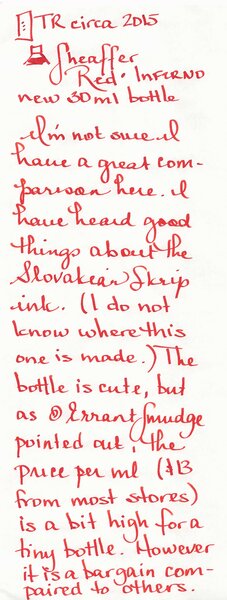 TR circa 2015
Sheaffer
Red · INFERNO
new 30 ml bottle
I'm not sure I
have a great com-
parison here. I
have heard good
things about the
Slovakian Skrip
ink. (I do not
know where this
one is made.) The
bottle is cute, but
as @ErrantSmudge
pointed out, the
price per ml ($13
from most stores)
is a bit high for a
tiny bottle. However
it is a bargain com-
paired to others.